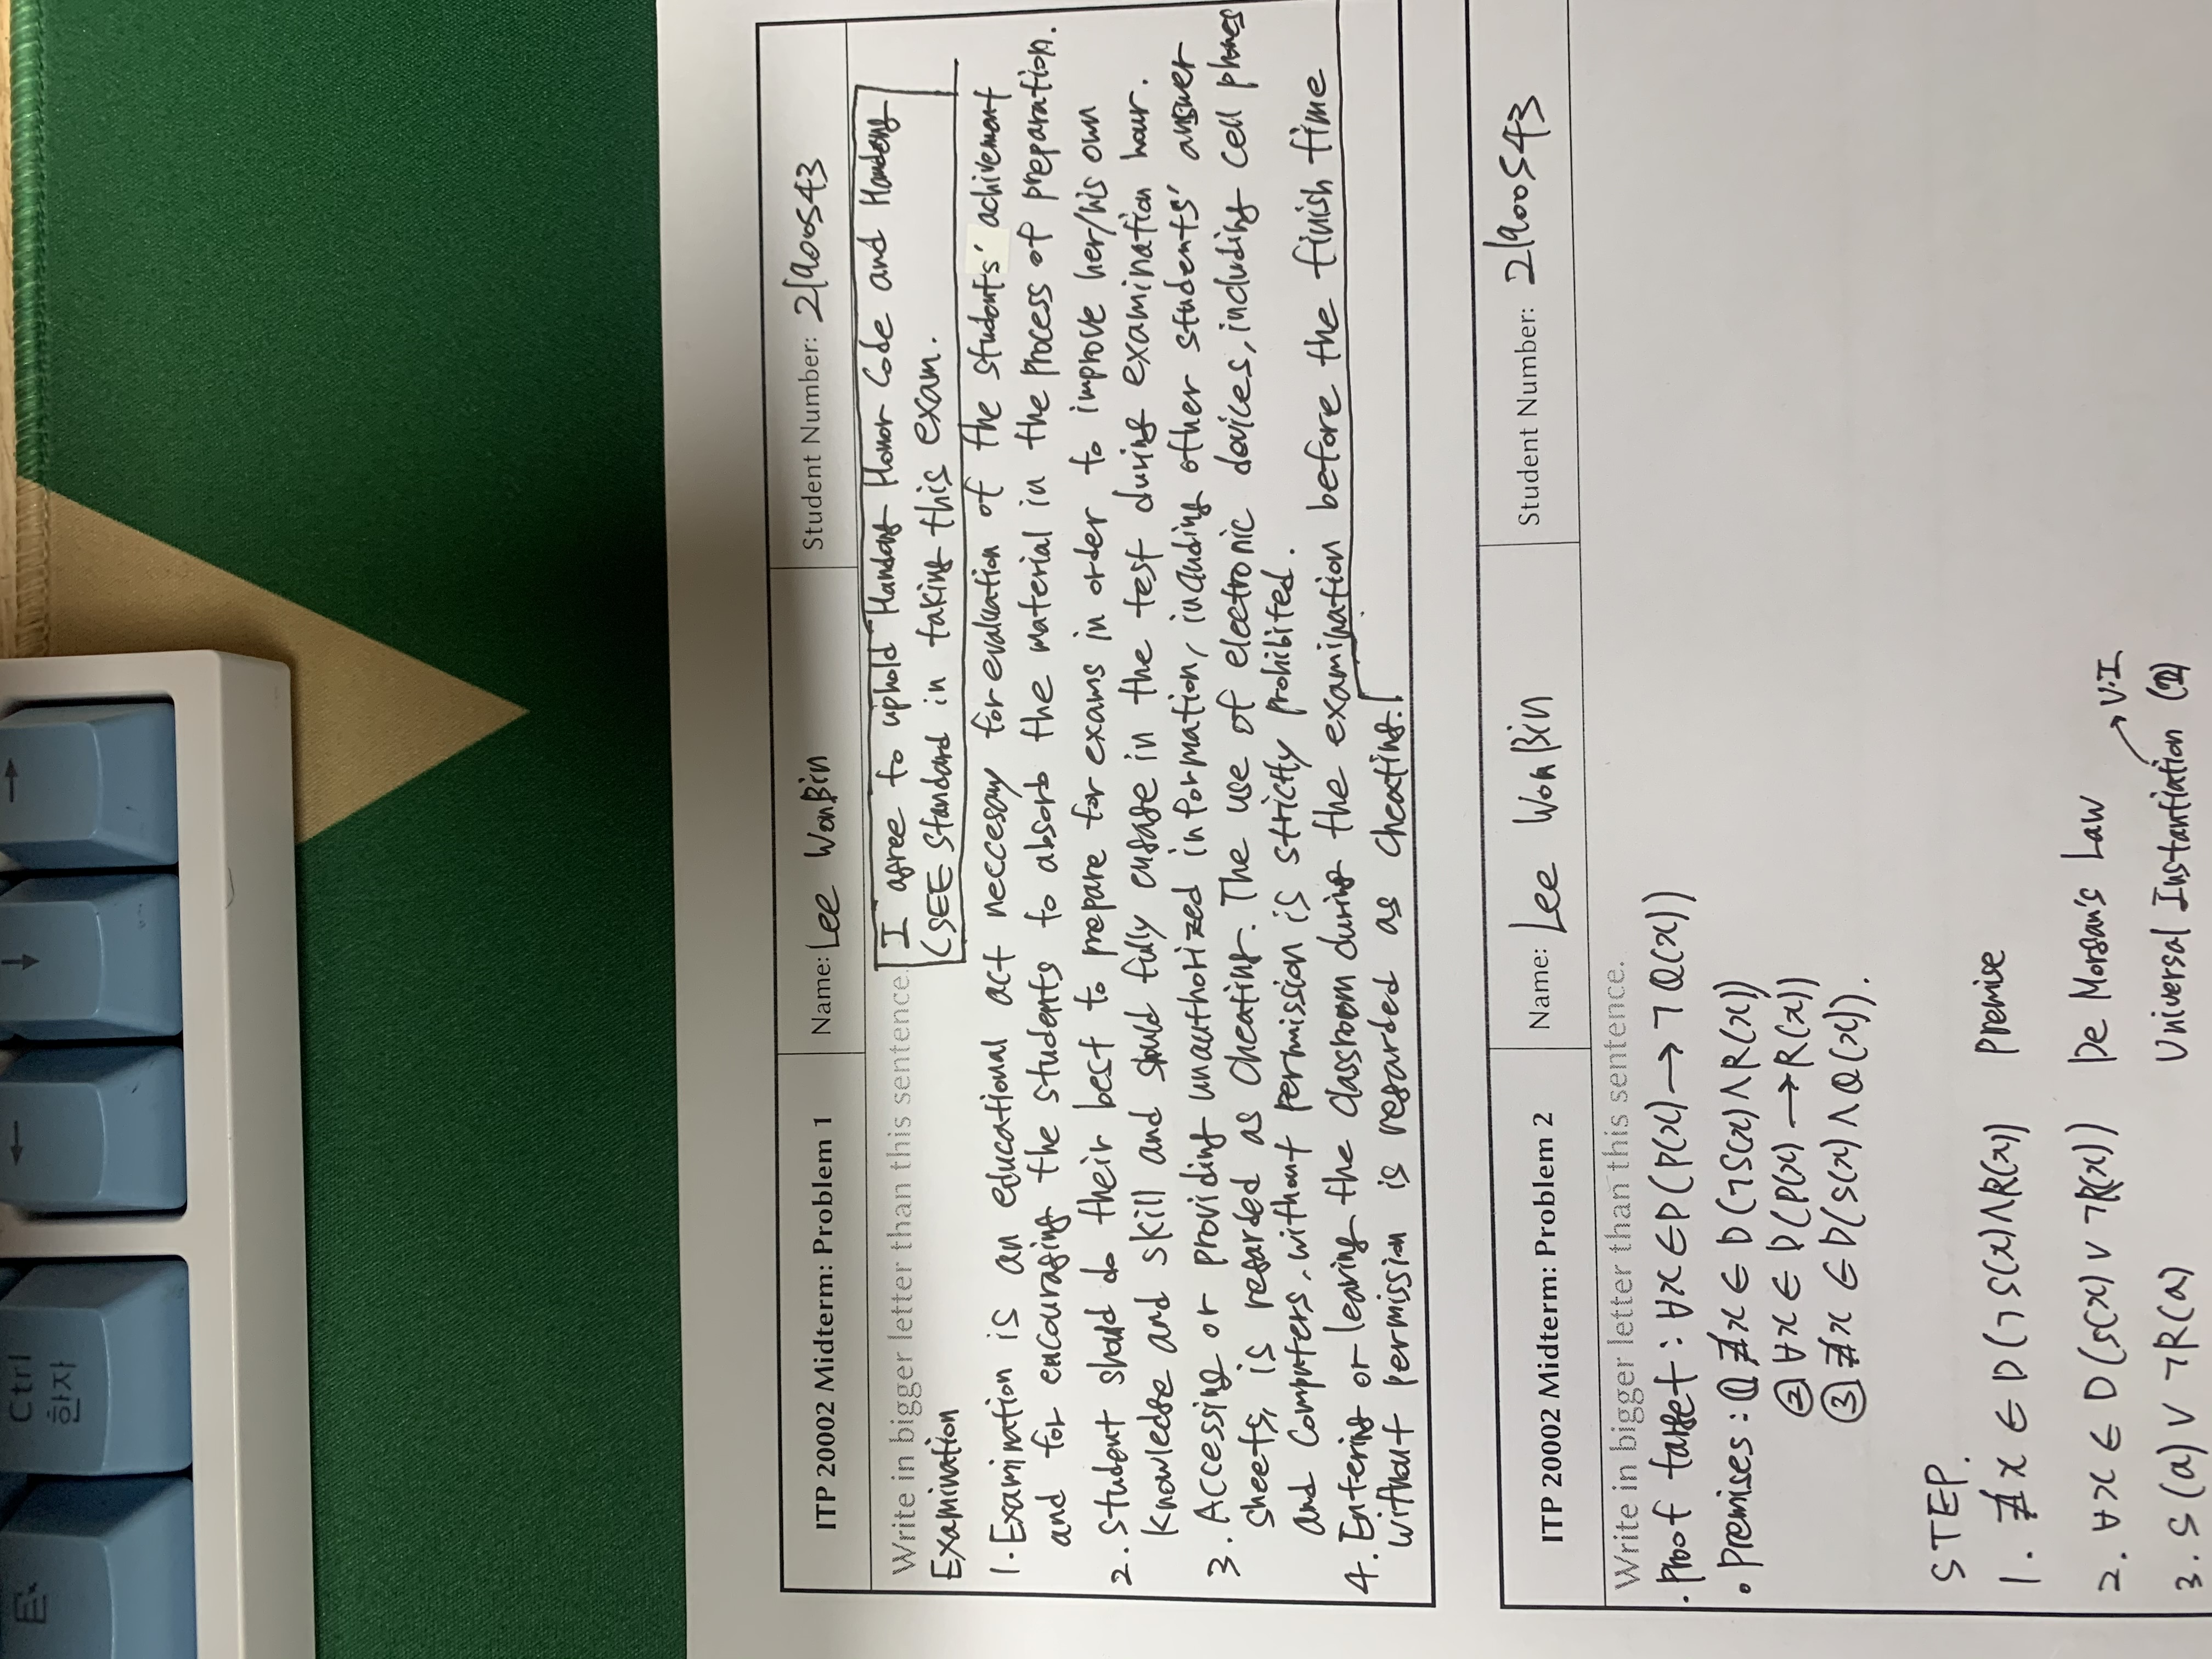 Ctrl
한자
←
↓
→
ITP 20002 Midterm: Problem 1
Name: Lee WonBin
Student Number: 21900543
Write in bigger letter than this sentence.
I agree to uphold Handong Honor Code and Handong
CSEE Standard in taking this exam.
Examination
1. Examination is an educational act neccesay for evaluation of the students' achivement
and for encouraging the students to absorb the material in the process of preparation.
2. Student should do their best to prepare for exams in order to improve her/his own
knowledge and skill and should fully engage in the test during examination hour.
3. Accessing or providing unauthorized information, including other students' answer
sheets, is regarded as cheating. The use of electronic devices, including cell phones
and computers, without permission is strictly prohibited.
4. Entering or leaving the classroom during the examination before the finish time
without permission is regarded as cheating.
ITP 20002 Midterm: Problem 2
Name: Lee WonBin
Student Number: 21900543
Write in bigger letter than this sentence.
· Proof target : ∀x ∈ D (P(x) → ¬Q(x))
• Premises : ① ∄x ∈ D (¬S(x) ∧ R(x))
② ∀x ∈ D (P(x) → R(x))
③ ∄x ∈ D (S(x) ∧ Q(x)).
STEP.
1. ∄x ∈ D (¬S(x) ∧ R(x)) Premise
2. ∀x ∈ D (S(x) ∨ ¬R(x)) De Morgan's Law
→ U.I
3. S(a) ∨ ¬R(a) Universal Instantiation (2)